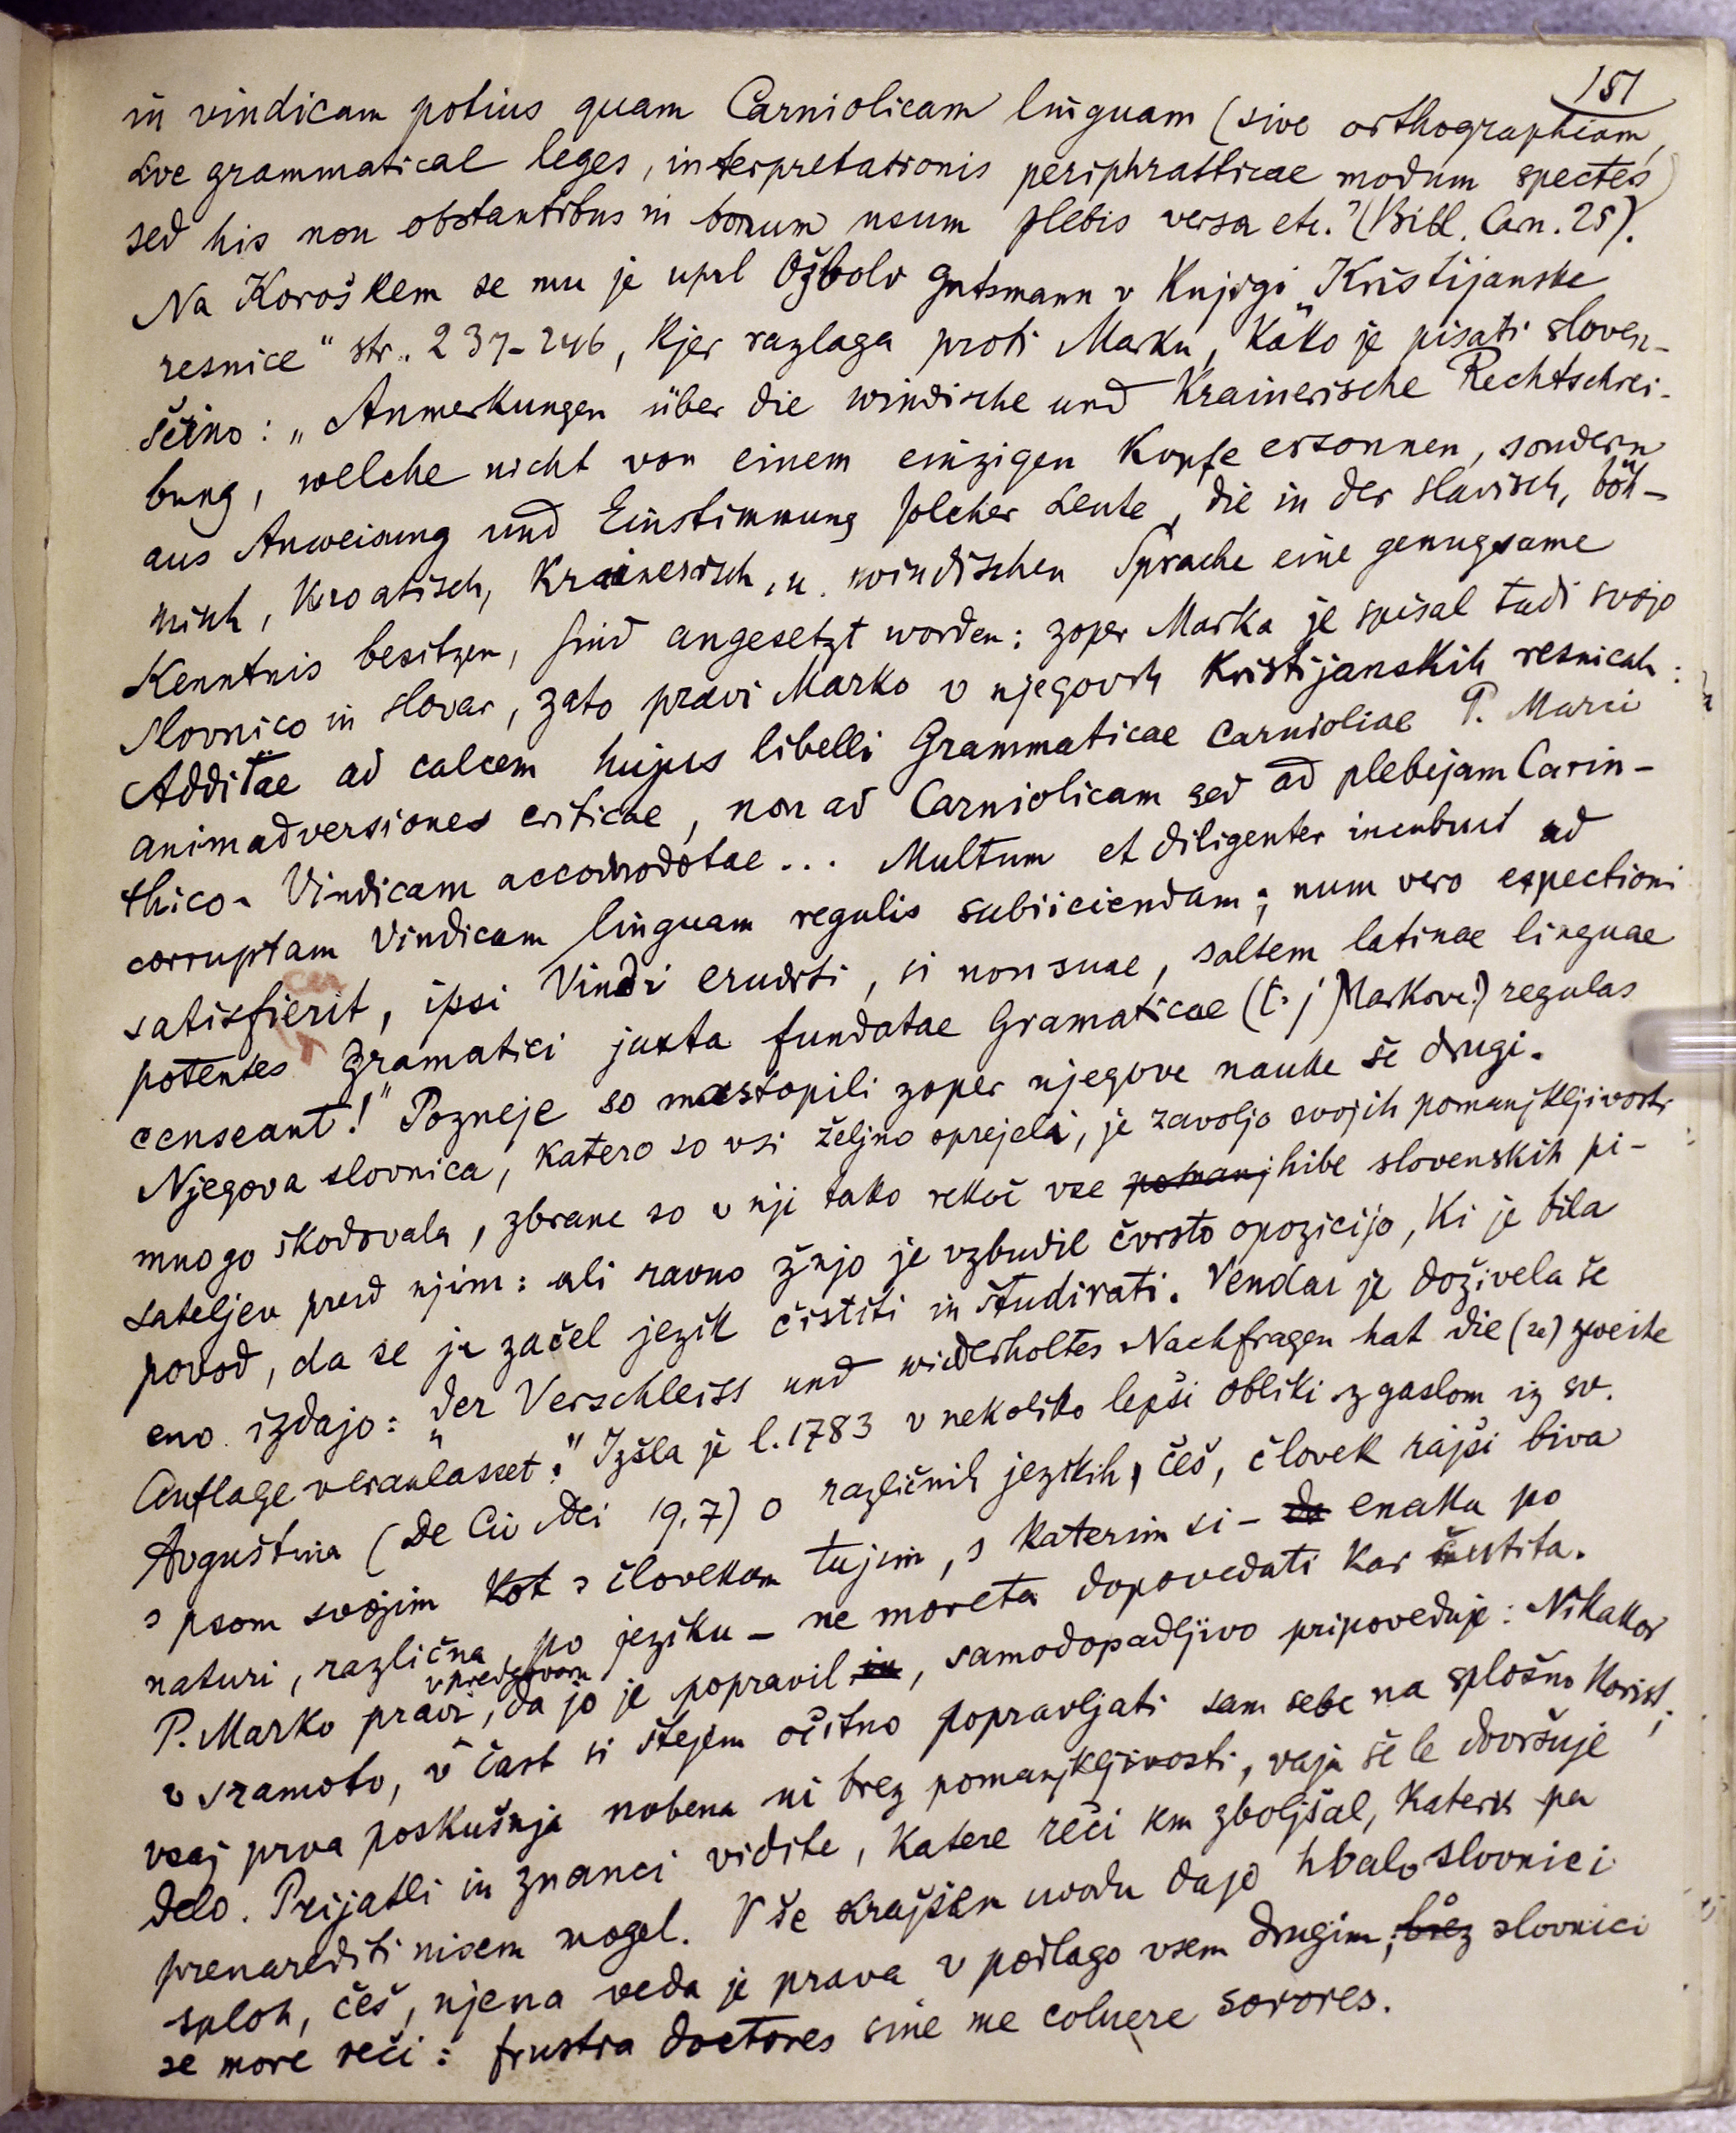 151
in vindicam potius quam Carniolicam linguam (sive orthographiam,
sve grammaticae leges, interpretationis periphrasticae modum spectes)
sed his non obstantibus in bonum usum plebis versa etc." (Bibl. Carn. 25).
Na Koroškem se mu je uprl Ožbolv Gutsmann v Knjigi „Kristijanske
resnice" str. 237-246, kjer razlaga proti Marku, kako je pisati sloven-
ščino: „Anmerkungen über die windische und Krainerische Rechtschrei-
bung, welche nicht von einem einzigen Kopfe ersonnen, sondern
aus Anweisung und Einstimmung solcher Leute, die in der slavisch, böh-
misch, Kroatisch, Krainerisch, u. windischen Sprache eine genugsame
Kenntnis besitzen, sind angesetzt worden: zoper Marka je spisal tudi svojo
slovnico in slovar, zato pravi Marko v njegovih Kristijanskih resnicah:
Additae ad calcem hujus libelli Grammaticae Carnioliae P. Marci
animadversiones criticae, non ad Carniolicam sed ad plebejam Carin-
thico-Vindicam accomodatae... Multum et diligenter incubuit ad
corruptam Vindicam linguam regulis subiiciendam; num vero expectioni
satisfierit, ipsi Vindi eruditi, si non suae, saltem latinae linguae
potentes gramatici juxta fundatae Gramaticae (t. j. Markove!) regulas
censeant!" Pozneje so nastopili zoper njegove nauke še drugi.
Njegova slovnica, katero so vsi željno sprejeli, je zavoljo svojih pomanjkljivosti
mnogo škodovala, zbrane so v nji tako rekoč vse pomanj hibe slovenskih pi-
sateljev pred njim: ali ravno žnjo je vzbudil čvrsto opozicijo, ki je bila
povod, da se je začel jezik čistiti in študirati. Vendar je doživela še
eno izdajo: „Der Verschleiss und widerholtes Nachfragen hat die (2e) zweite
Auflage veranlasset." Izšla je l. 1783 v nekoliko lepši obliki z gaslom iz sv.
Avguština (De Civ Dei 19,7) o različnih jezikih, češ, človek rajši biva
s psom svojim kot s človekom tujim, s katerim si - da enaka po
naturi, različna po jeziku - ne moreta dopovedati kar čutita.
P. Marko pravi v predgovoru, da jo je popravil in, samodopadljivo pripoveduje: Nikakor
v sramoto, v čast si štejem očitno popravljati sam sebe na splošno korist;
vsaj prva poskušnja nobena ni brez pomanjkljivosti, vaja še le dovršuje
delo. Prijatli in znanci vidite, katere reči sem zboljšal, katerih pa
prenarediti nisem mogel. V še krajšem uvodu dajo hvalo slovnici
sploh, češ, njena veda je prava v podlago vsem drugim; brez slovnici
se more reči: frustra doctores sine me coluere sorores.